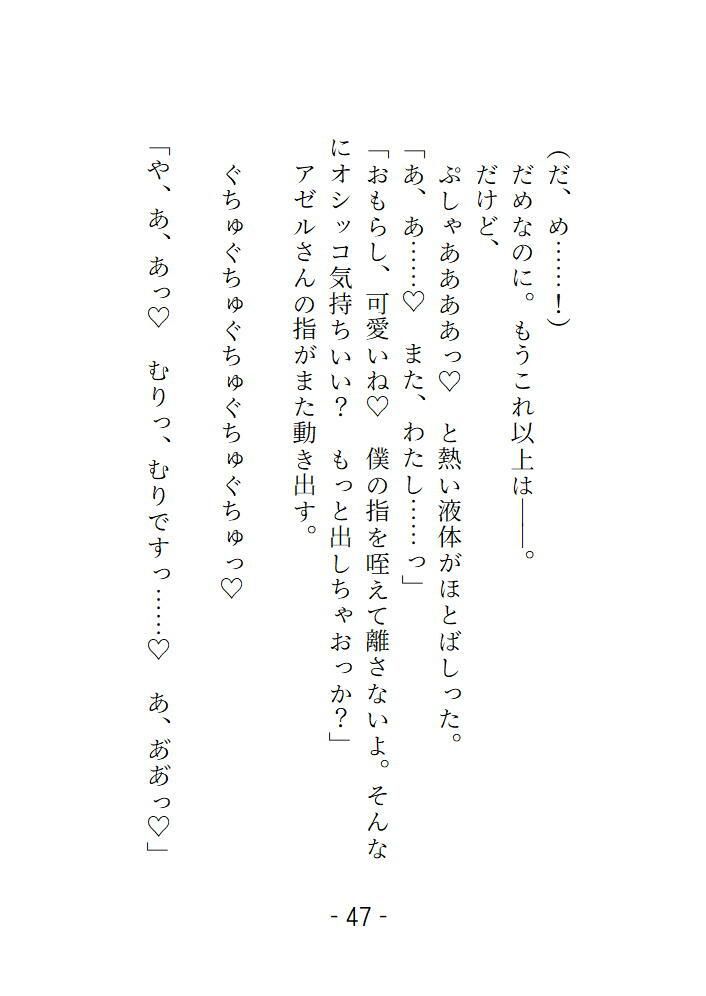 (だ、め……！)
だめなのに。もうこれ以上は――。
だけど、
ぷしゃああああっ♡　と熱い液体がほとばしった。
「あ、あ……♡　また、わたし……っ」
「おもらし、可愛いね♡　僕の指を咥えて離さないよ。そんな
にオシッコ気持ちいい？　もっと出しちゃおっか？」
アゼルさんの指がまた動き出す。
ぐちゅぐちゅぐちゅぐちゅぐちゅっ♡
「や、あ、あっ♡　むりっ、むりですっ……♡　あ、あ゙あ゙っ♡」
- 47 -